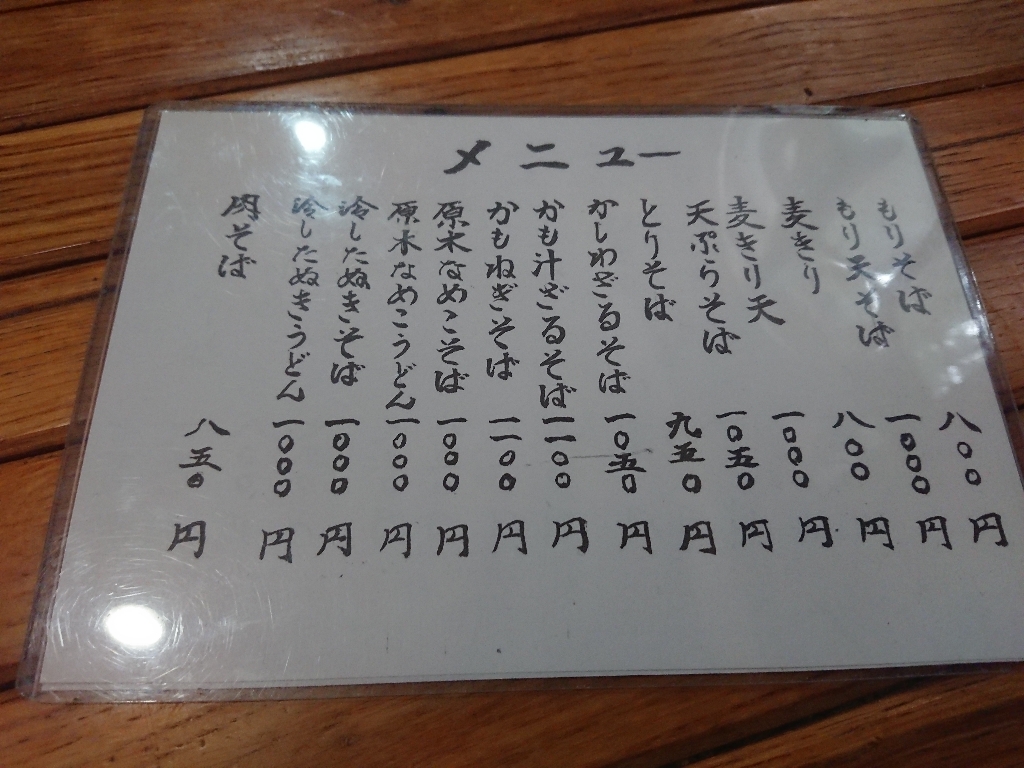 メニュー
もりそば 八〇〇円
もり天そば 一〇〇〇円
麦きり 八〇〇円
麦きり天 一〇〇〇円
天ぷらそば 一〇五〇円
とりそば 九五〇円
かしわざるそば 一〇五〇円
かも汁ざるそば 一一〇〇円
かもねぎそば 一一〇〇円
原木なめこそば 一〇〇〇円
原木なめこうどん 一〇〇〇円
冷したぬきそば 一〇〇〇円
冷したぬきうどん 一〇〇〇円
肉そば 八五〇円